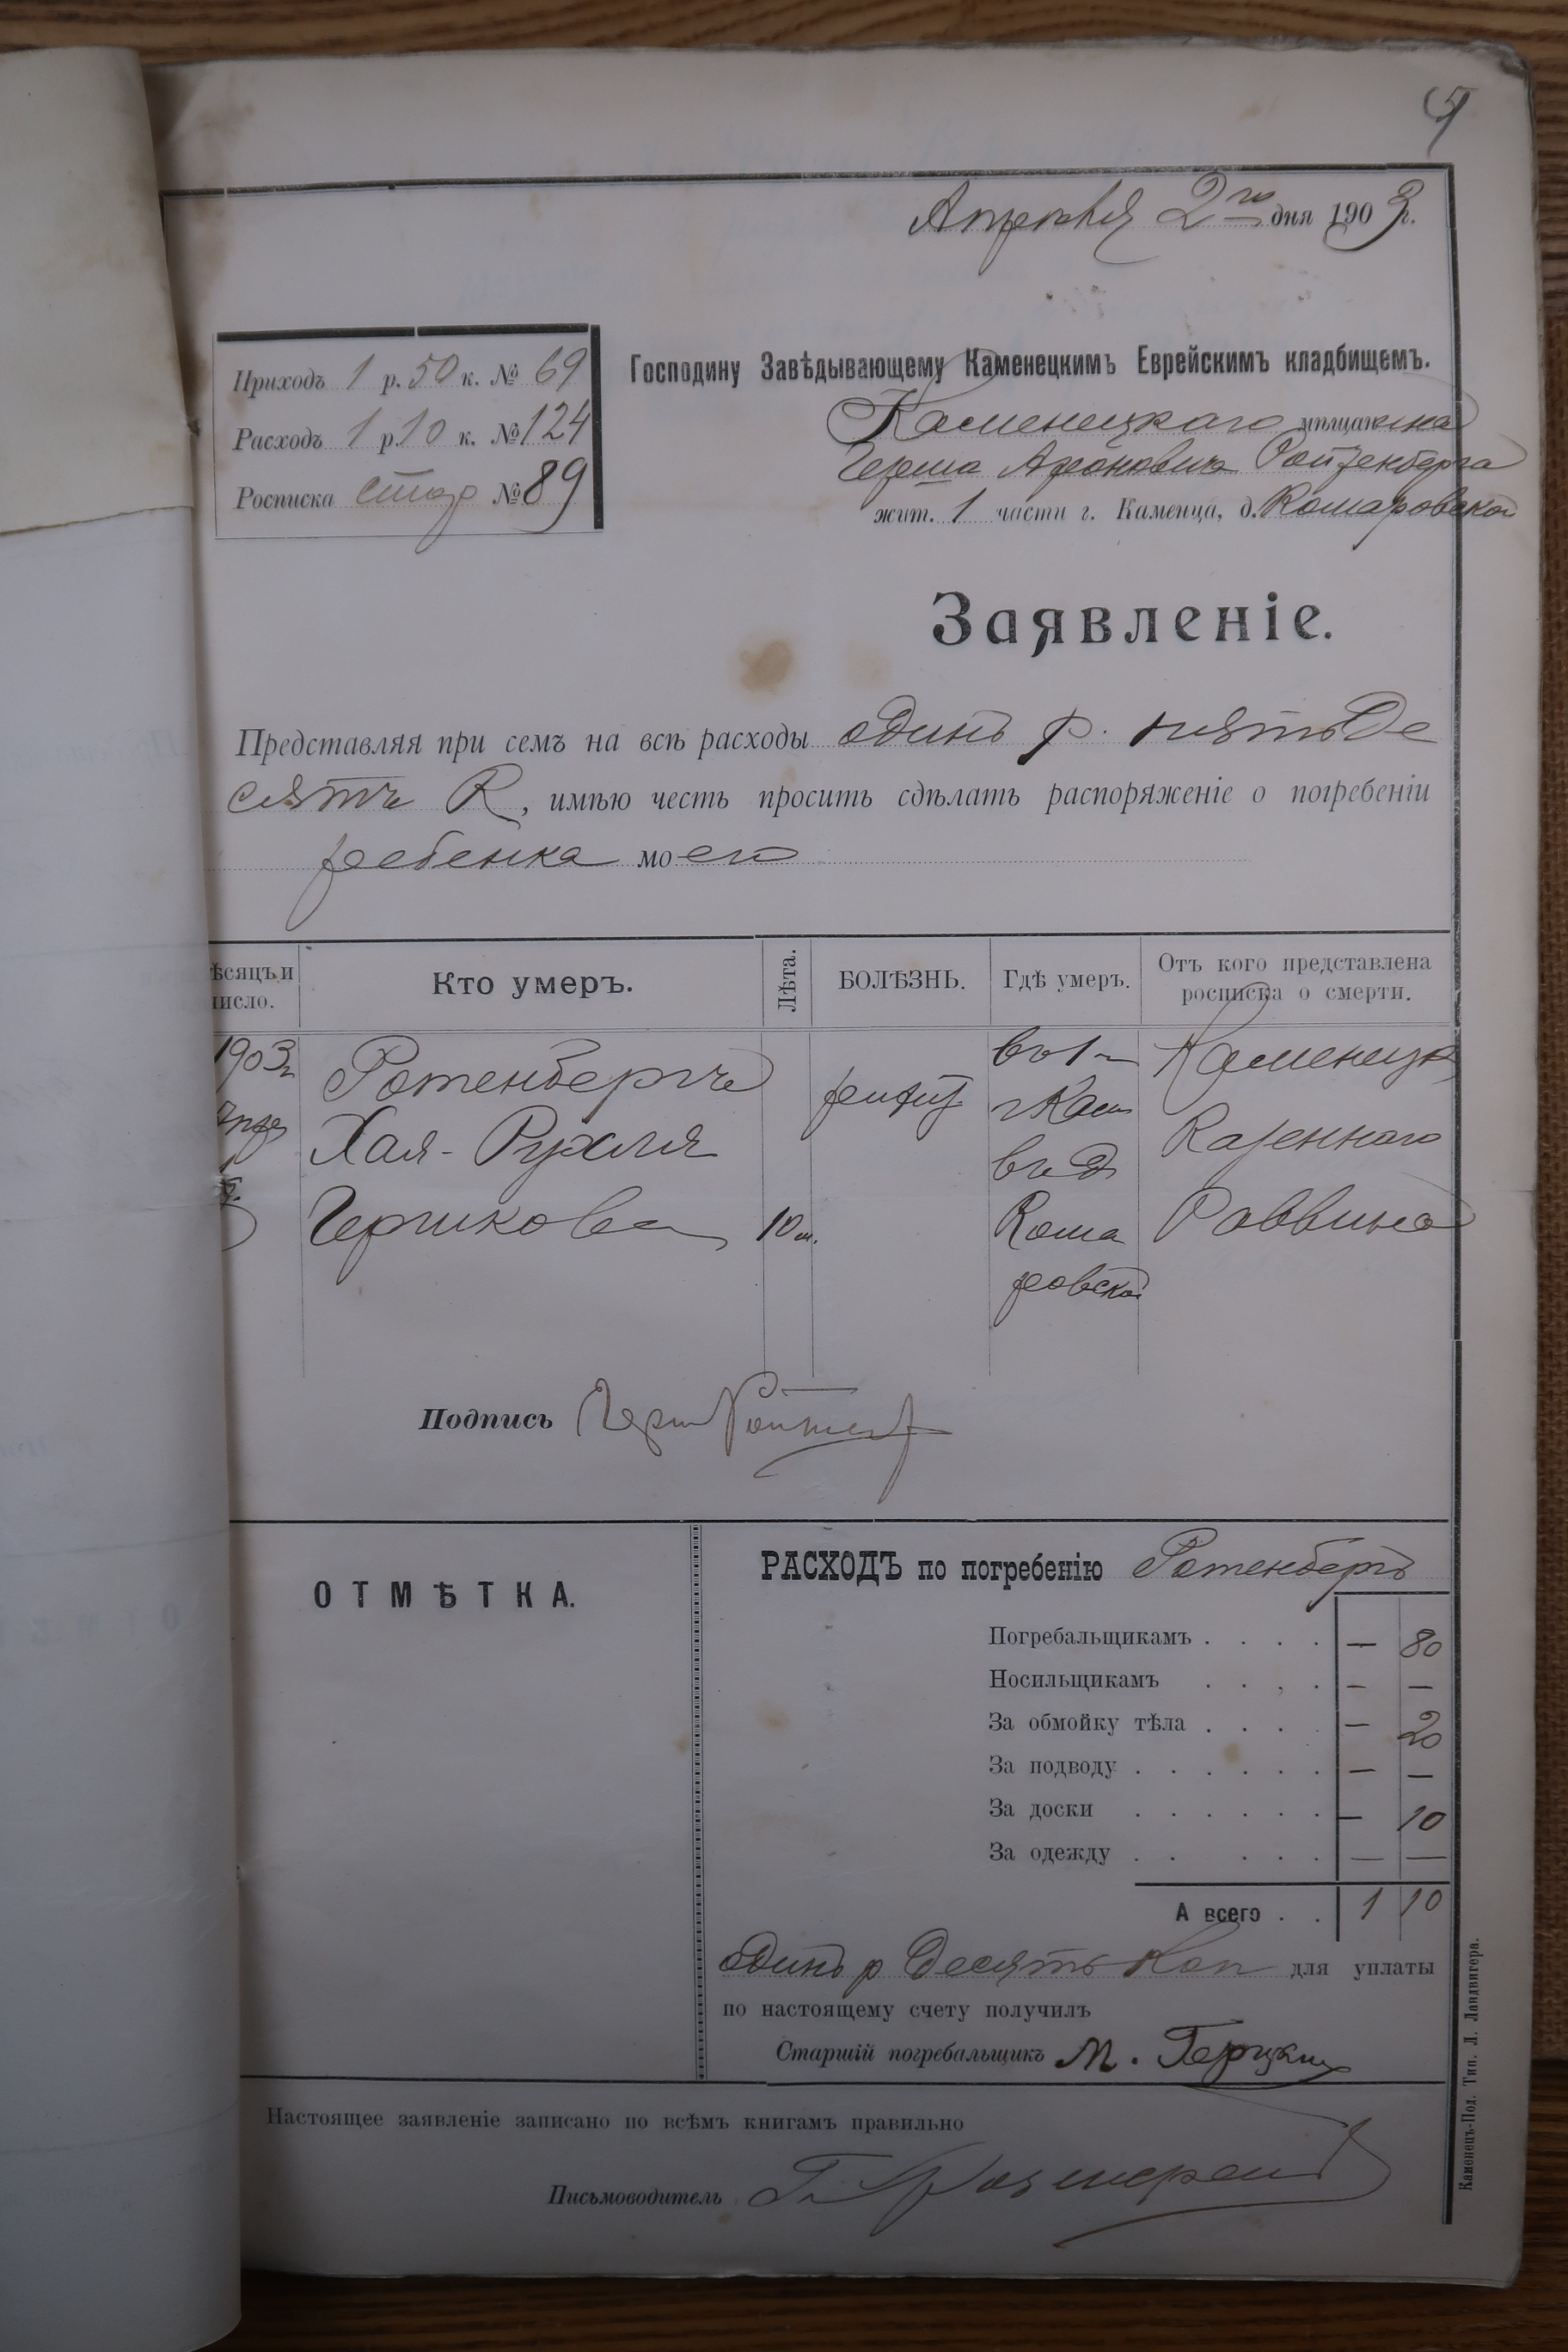 Апреля 2го дня 1903г.
Приходъ 1 р. 50 к. № 69
Расходъ 1 р. 10 к. № 124
Росписка стар № 89
Господину Завѣдывающему Каменецкимъ Еврейскимъ кладбищемъ.
Каменецкаго мѣщанина
Герша Ароновича Ройтенберга
жит. 1 части г. Каменца, д. Комаровской
Заявленіе.
Представляя при семъ на всѣ расходы одинъ р. пятьде
сятъ К, имѣю честь просить сдѣлать распоряженіе о погребеніи
ребенка моего
ѣсяцъ и число.
Кто умеръ.
Лѣта.
БОЛѢЗНЬ.
Гдѣ умеръ.
Отъ кого представлена росписка о смерти.
1903г
Ротенбергъ
Хая-Рухля
Гершкова
10 м.
въ 1 ч
г Кам
въ д
Кома
ровской
Каменецк
Казеннаго
Раввина
Подпись Герш
ОТМѢТКА.
РАСХОДЪ по погребенію Ротенбергъ
Погребальщикамъ . . . . — 80
Носильщикамъ . . . . — —
За обмойку тѣла . . . . — 20
За подводу . . . . . . — —
За доски . . . . . . — 10
За одежду . . . . . — —
А всего . . 1 10
одинъ р десять коп для уплаты
по настоящему счету получилъ
Старшій погребальщикъ М.
Настоящее заявленіе записано по всѣмъ книгамъ правильно
Письмоводитель
Каменецъ-Под. Тип. Л. Ландвигера.